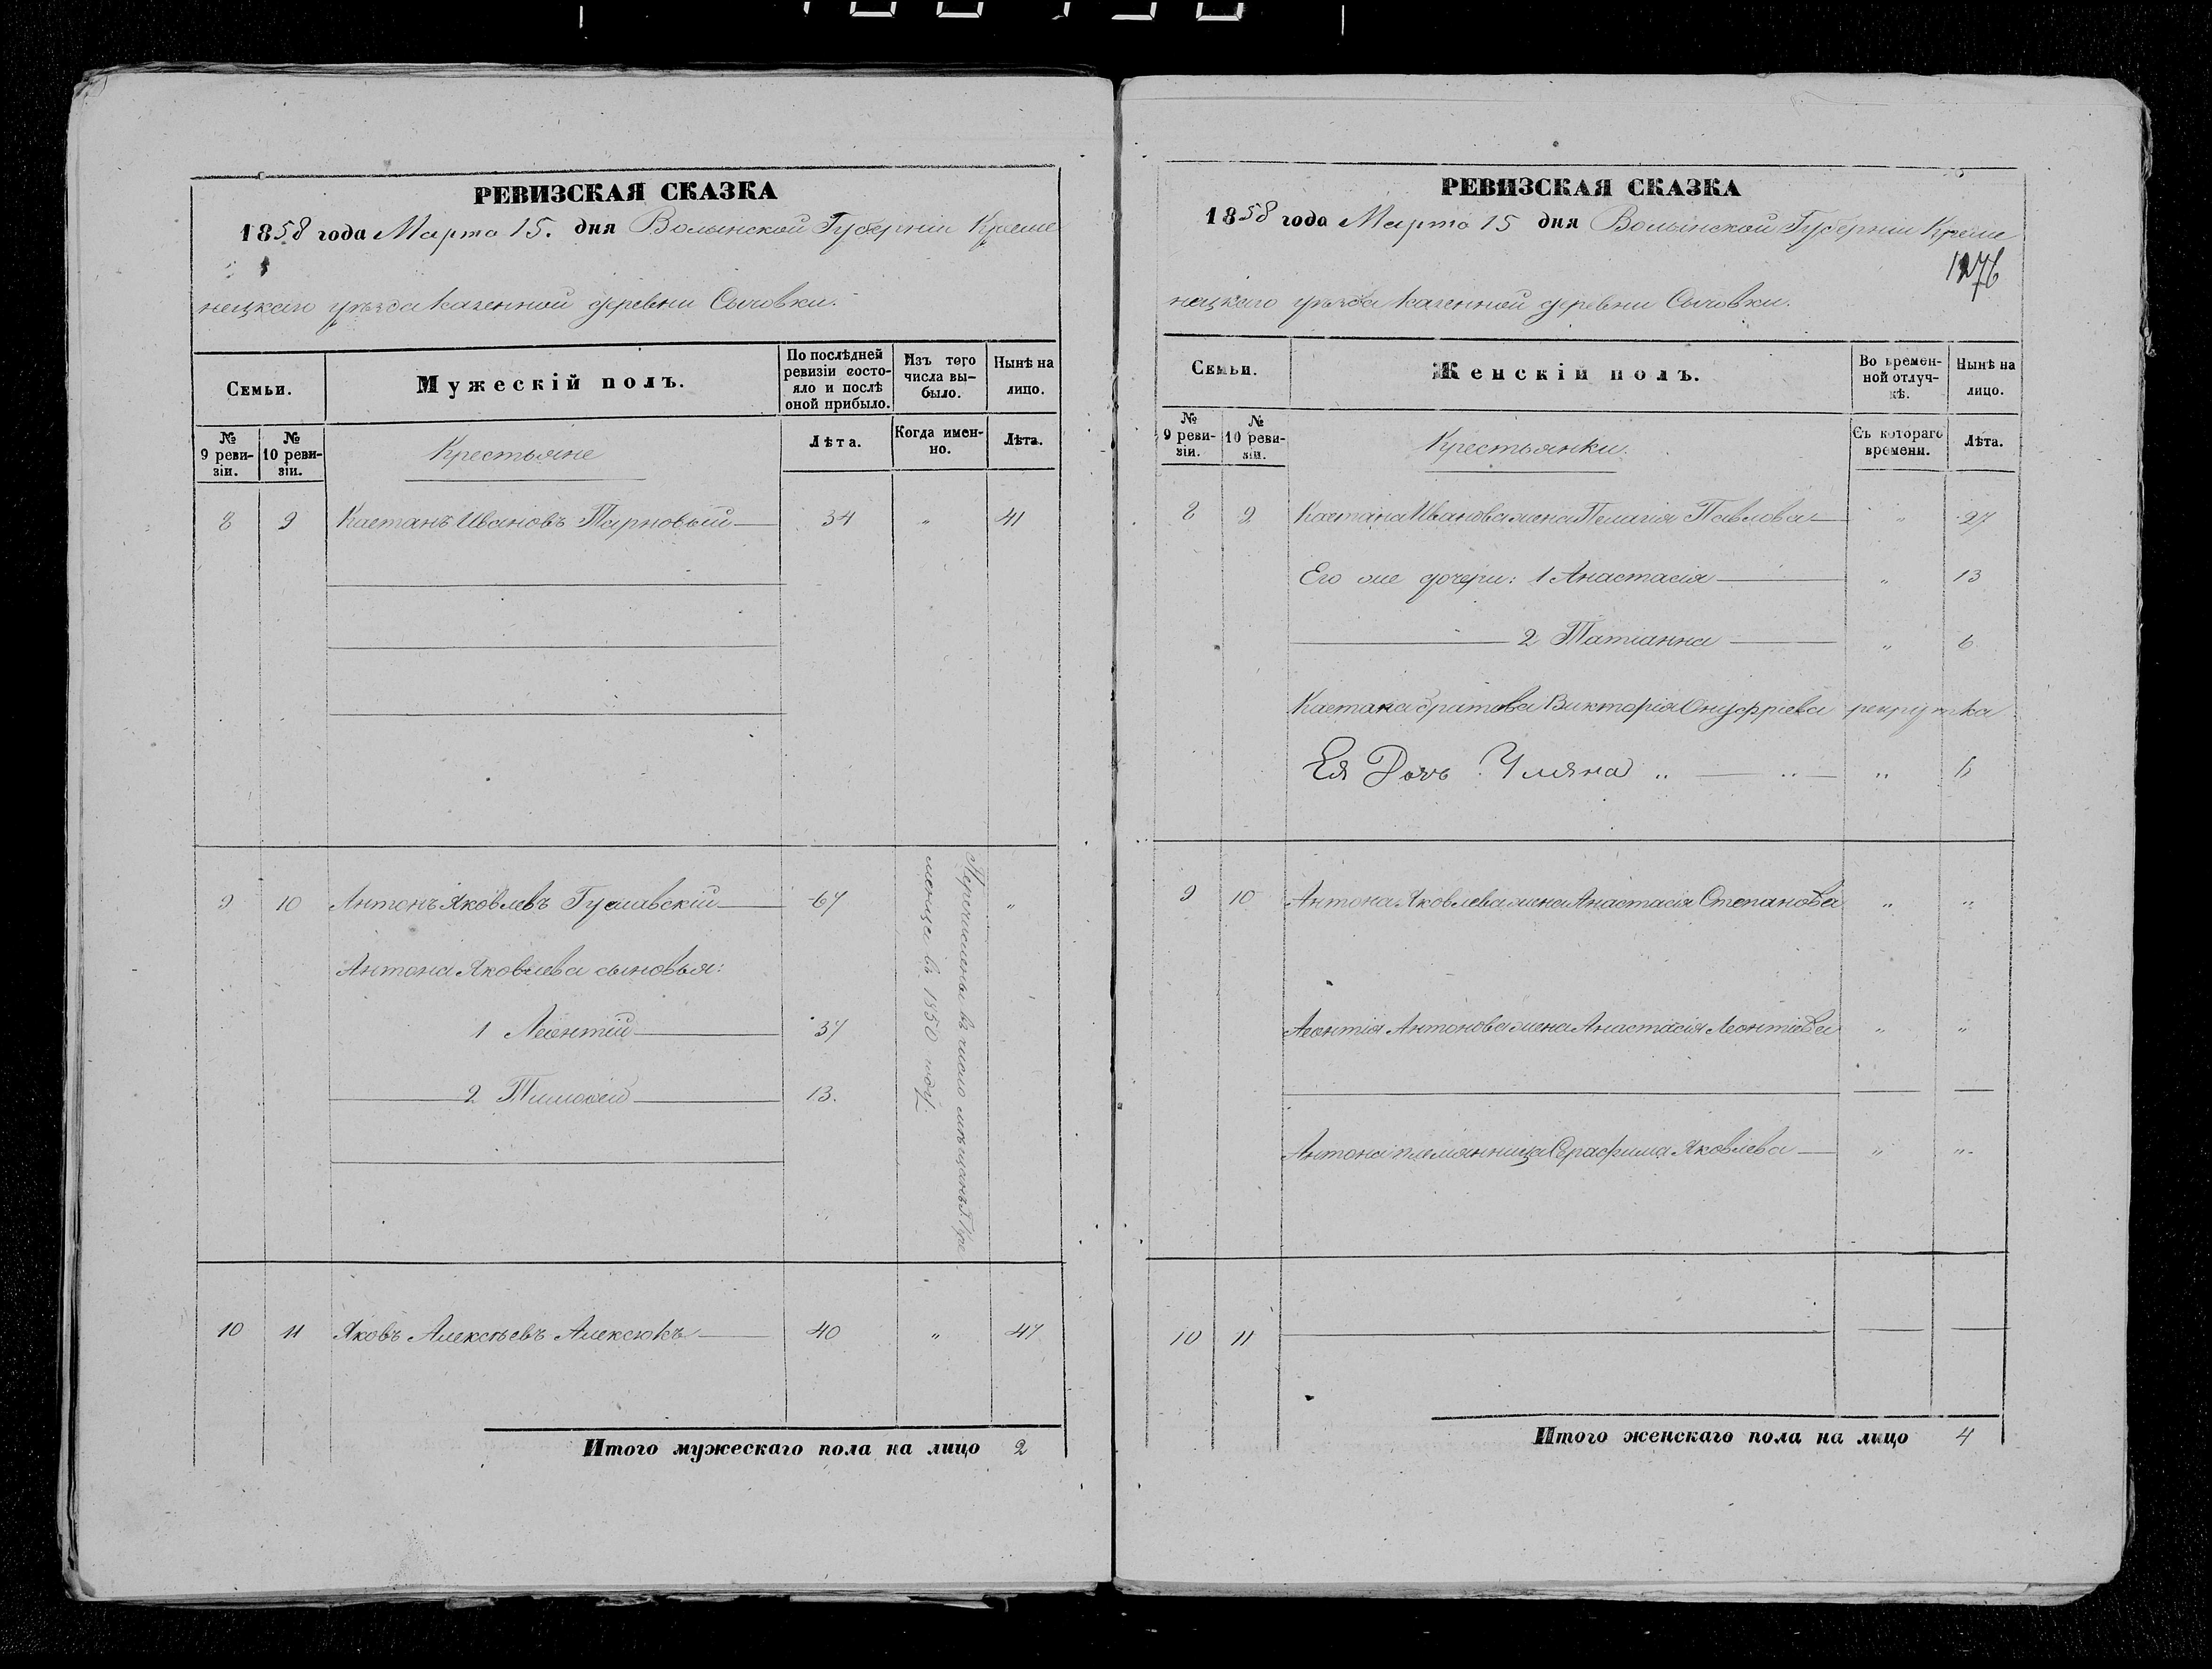 РЕВИЗСКАЯ СКАЗКА
1858 года Марта 15. дня Волынской Губерніи Креме
нецкаго уѣзда казенной деревни Сычовки.
Семьи.
Мужескій полъ.
По послѣдней ревизіи состо-
яло и послѣ
оной прибыло.
Изъ того
числа вы-
было.
Нынѣ на
лицо.
№
9 реви-
зіи.
№
10 реви-
зіи.
Крестьяне
Лѣта.
Когда имен-
но.
Лѣта.
8 9 Каетанъ Ивановъ Тарновый 34 " 41
9 10 Антонъ Яковлевъ 67 "
Антона Яковлева сыновья:
1 Леонтій 37
2 Тимоѳей 13.
Перечислены въ число мѣщанъ г. Кре
менца въ 1850 году.
10 11 Яковъ Алексѣевъ Алексюкъ 40 " 47
Итого мужескаго пола на лицо 2
РЕВИЗСКАЯ СКАЗКА
1858 года Марта 15 дня Волынской Губерніи Креме
нецкаго уѣзда казенной деревни Сычовки.
Семьи.
Женскій полъ.
Во времен-
ной отлуч-
кѣ.
Нынѣ на
лицо.
№
9 реви-
зіи.
№
10 реви-
зіи.
Крестьянки.
Съ котораго
времени.
Лѣта.
8 9 Каетана Иванова жена Пелагія Павлова " 27
Его же дочери: 1 Анастасія " 13
2 Татіанна " 6
Каетана братова Викторія Онуфріева рекрутка
Ея Дочь Уляна " " " 6
9 10 Антона Яковлева жена Анастасія Степанова " "
Леонтія Антонова жена Анастасія Леонтіева " "
Антона племянница Серафима Яковлева " "
10 11
Итого женскаго пола на лицо 4